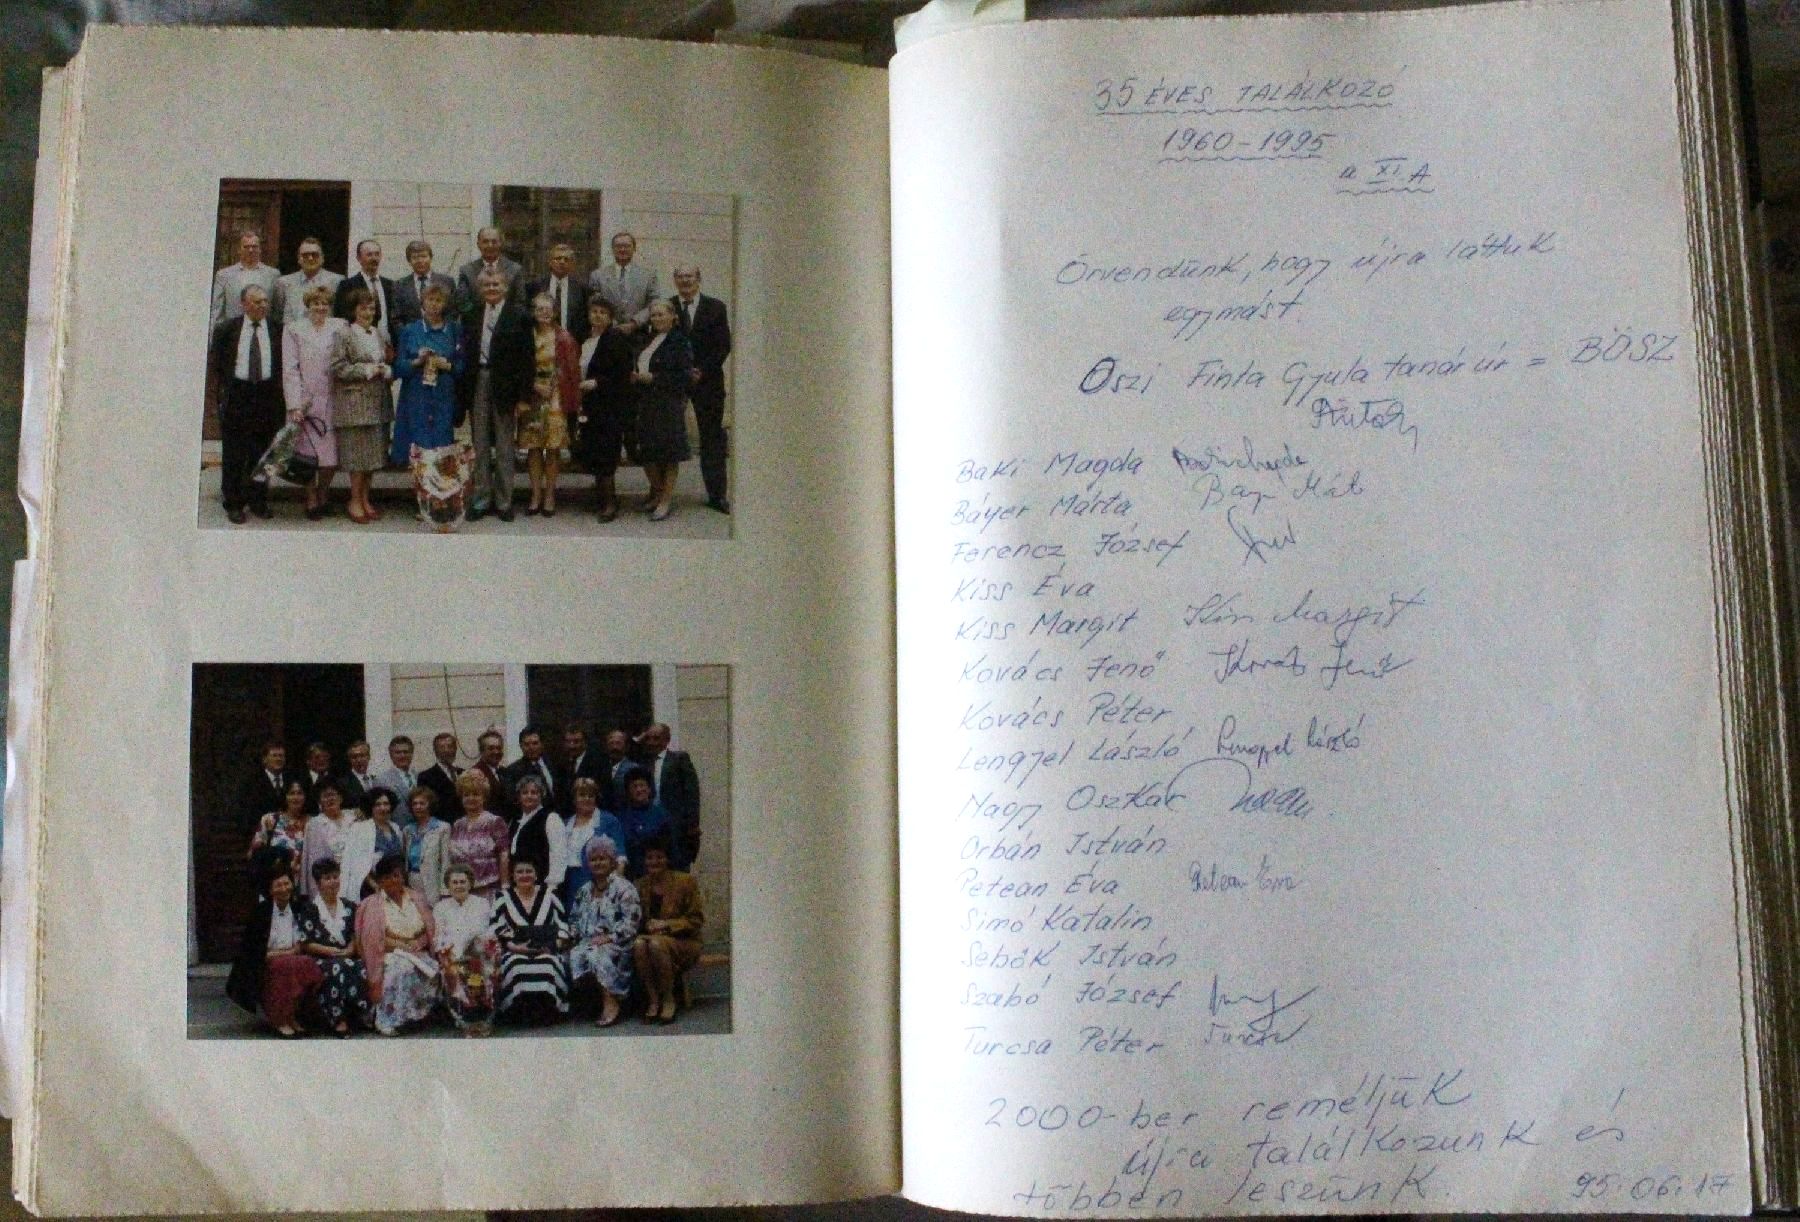 35 ÉVES TALÁLKOZÓ
1960-1995
a XI. A
Örvendünk, hogy újra láttuk
egymást.
Oszi Finta Gyula tanár úr = BÖSZ
Baki Magda
Báyer Márta
Ferencz József
Kiss Éva
Kiss Margit Kiss Margit
Kovács Jenő Kovács Jenő
Kovács Péter
Lengyel László Lengyel László
Nagy Oszkár
Orbán István
Petean Éva Petean Éva
Simó Katalin
Sebők István
Szabó József
Turcsa Péter Turcsa
2000-ber reméljük
újra találkozunk és
többen leszünk.
95.06.17